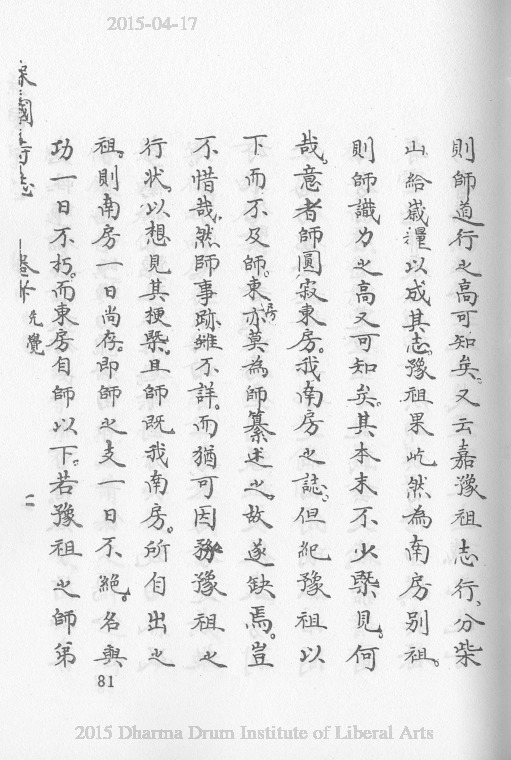 2015-04-17
則師道行之高可知矣。又云嘉豫祖志行、分柴
山給歲糧以成其志。豫祖果屹然為南房別祖。
則師識力之高又可知矣。其本末不少槩見。何
哉。意者師圓寂東房。我南房之誌。但紀豫祖以
下而不及師。東房亦莫為師纂述之。故遂缺焉。豈
不惜哉。然師事跡雖不詳。而猶可因豫祖之
行狀、以想見其梗槩。且師既我南房。所自出之
祖。則南房一日尚存。即師之支一日不絕。名與
功一日不朽。而東房自師以下。若豫祖之師弟
先覺
二
81
2015 Dharma Drum Institute of Liberal Arts